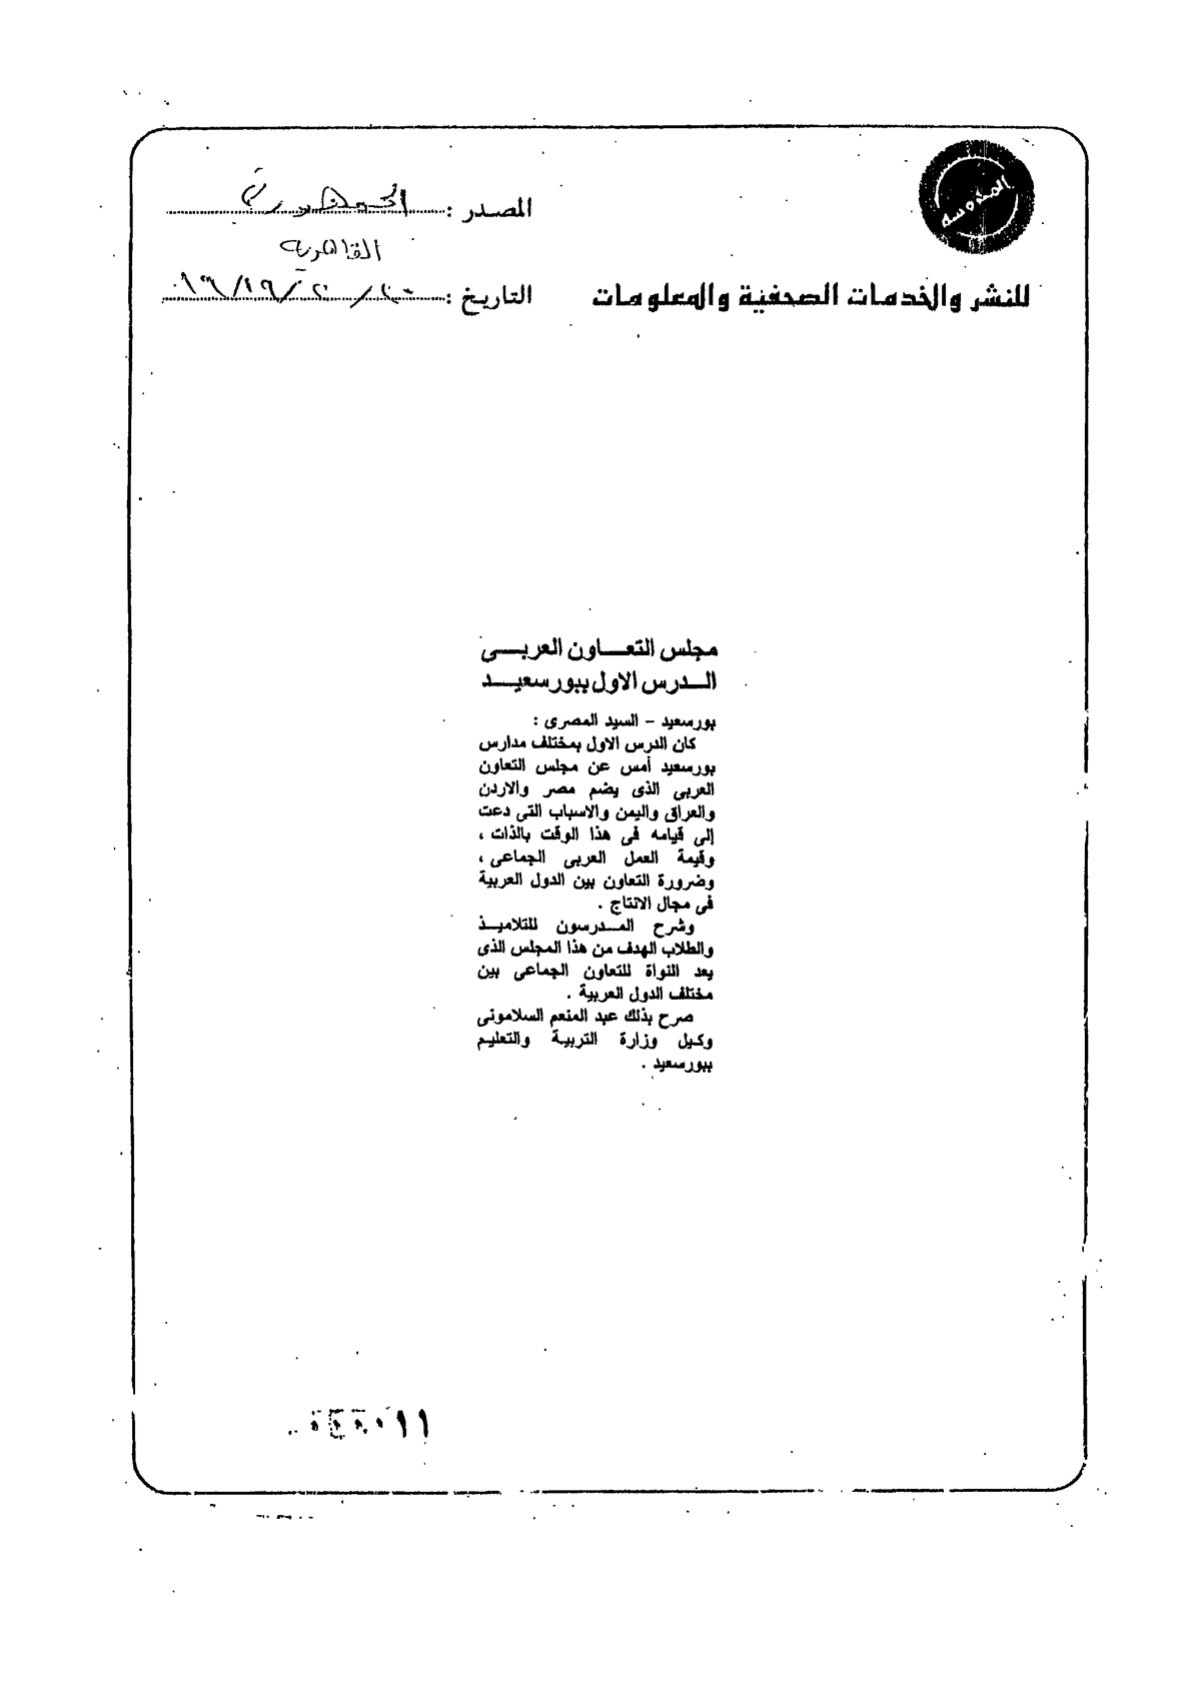 المحروسة
المصدر : الجمهورية
القاهرية
للنشر والخدمات الصحفية والمعلومات
التاريخ :
مجلس التعـاون العربـى
الـدرس الاول ببورسعيـد
بورسعيد - السيد المصرى :
كان الدرس الاول بمختلف مدارس
بورسعيد أمس عن مجلس التعاون
العربى الذى يضم مصر والاردن
والعراق واليمن والاسباب التى دعت
إلى قيامه فى هذا الوقت بالذات ،
وقيمة العمل العربى الجماعى ،
وضرورة التعاون بين الدول العربية
فى مجال الانتاج .
وشرح المـدرسون للتلاميـذ
والطلاب الهدف من هذا المجلس الذى
يعد النواة للتعاون الجماعى بين
مختلف الدول العربية .
صرح بذلك عبد المنعم السلامونى
وكيل وزارة التربية والتعليم
ببورسعيد .